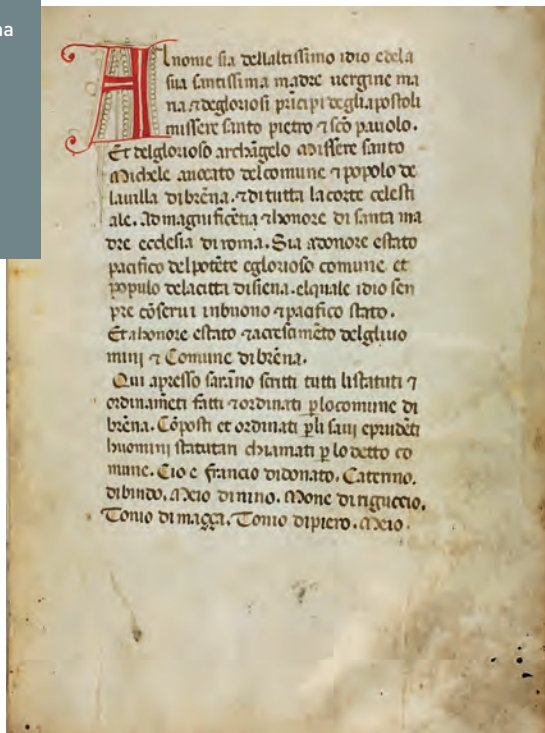 na
Al nome sia dellaltissimo idio edela
sua santissima madre uergine ma
ria ⁊ degloriosi prīcipi degliapostoli
missere santo pietro ⁊ sc̄o pauolo.
Et delglorioso archāgelo Missere santo
Michele auocato delcomune ⁊ popolo de
lauilla dibrēna. ⁊ di tutta lacorte celesti
ale. Ad magnificētia ⁊ honore di santa ma
dre ecclesia di roma. Sia adonore estato
pacifico delpotēte eglorioso comune et
populo delacitta disiena. elquale idio sen
pre cōserui inbuono ⁊ pacifico stato.
Et ahonore estato ⁊ acrescimēto delgliuo
mini ⁊ Comune dibrēna.
Qui apresso sarāno scritti tutti listatuti ⁊
ordinamēti fatti ⁊ ordinati ꝑ locomune di
brēna. Cōposti et ordinati ꝑ li saui eprudēti
huomini statutari chiamati ꝑ lo detto co
mune. Cio e francio didonato. Caterino.
dibindo. Meio dinino. Mone diriguccio.
Tonio di magça. Tonio dipiero. Meio.